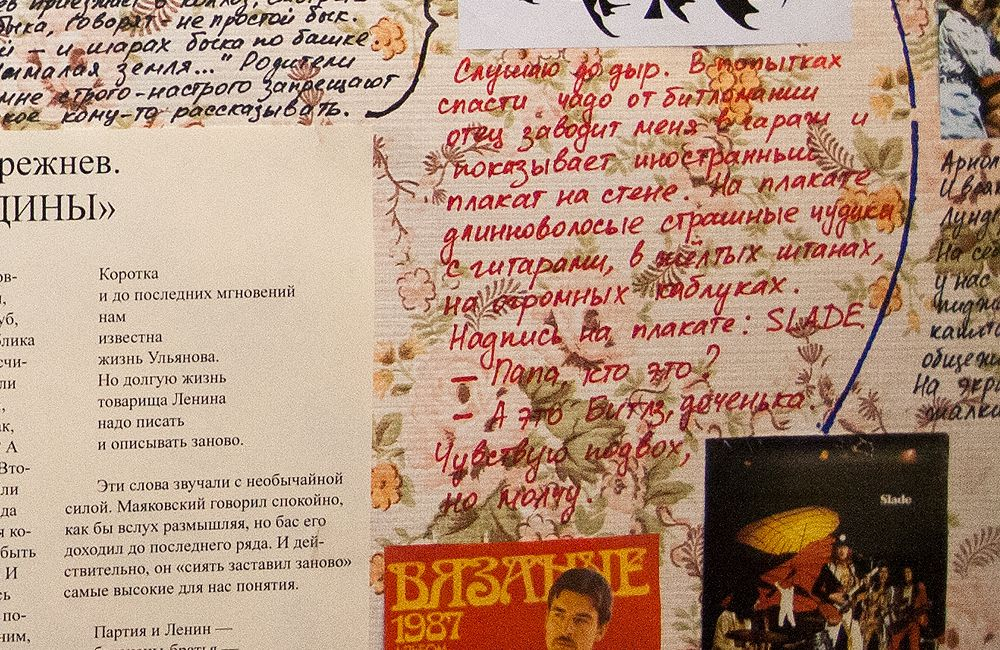 приезжает в колхоз, смотри-
быка, говорят, не простой бык.
й — и шарах быка по башке
малая земля..." Родители
мне строго-настрого запрещают
кое кому-то рассказывать.
режнев.
ДИНЫ»
ов-
уб,
блика
счи-
ли
ак,
А
Вто-
ли
да
я ко-
быть
И
сь
по-
ним,
Коротка
и до последних мгновений
нам
известна
жизнь Ульянова.
Но долгую жизнь
товарища Ленина
надо писать
и описывать заново.
Эти слова звучали с необычайной
силой. Маяковский говорил спокойно,
как бы вслух размышляя, но бас его
доходил до последнего ряда. И дей-
ствительно, он «сиять заставил заново»
самые высокие для нас понятия.
Партия и Ленин —
Слушаю до дыр. В попытках
спасти чадо от битломании
отец заводит меня в гараж и
показывает иностранный
плакат на стене. На плакате
длинноволосые страшные чудики
с гитарами, в жёлтых штанах,
на огромных каблуках.
Надпись на плакате: SLADE
— Папа, кто это?
— А это Битлз, доченька.
Чувствую подвох,
но молчу.
ВЯЗАНИЕ
1987
Slade
Арнол
И вра
Лунд
На се
у нас
пидж
кашта
общеж
На экр
фиалки